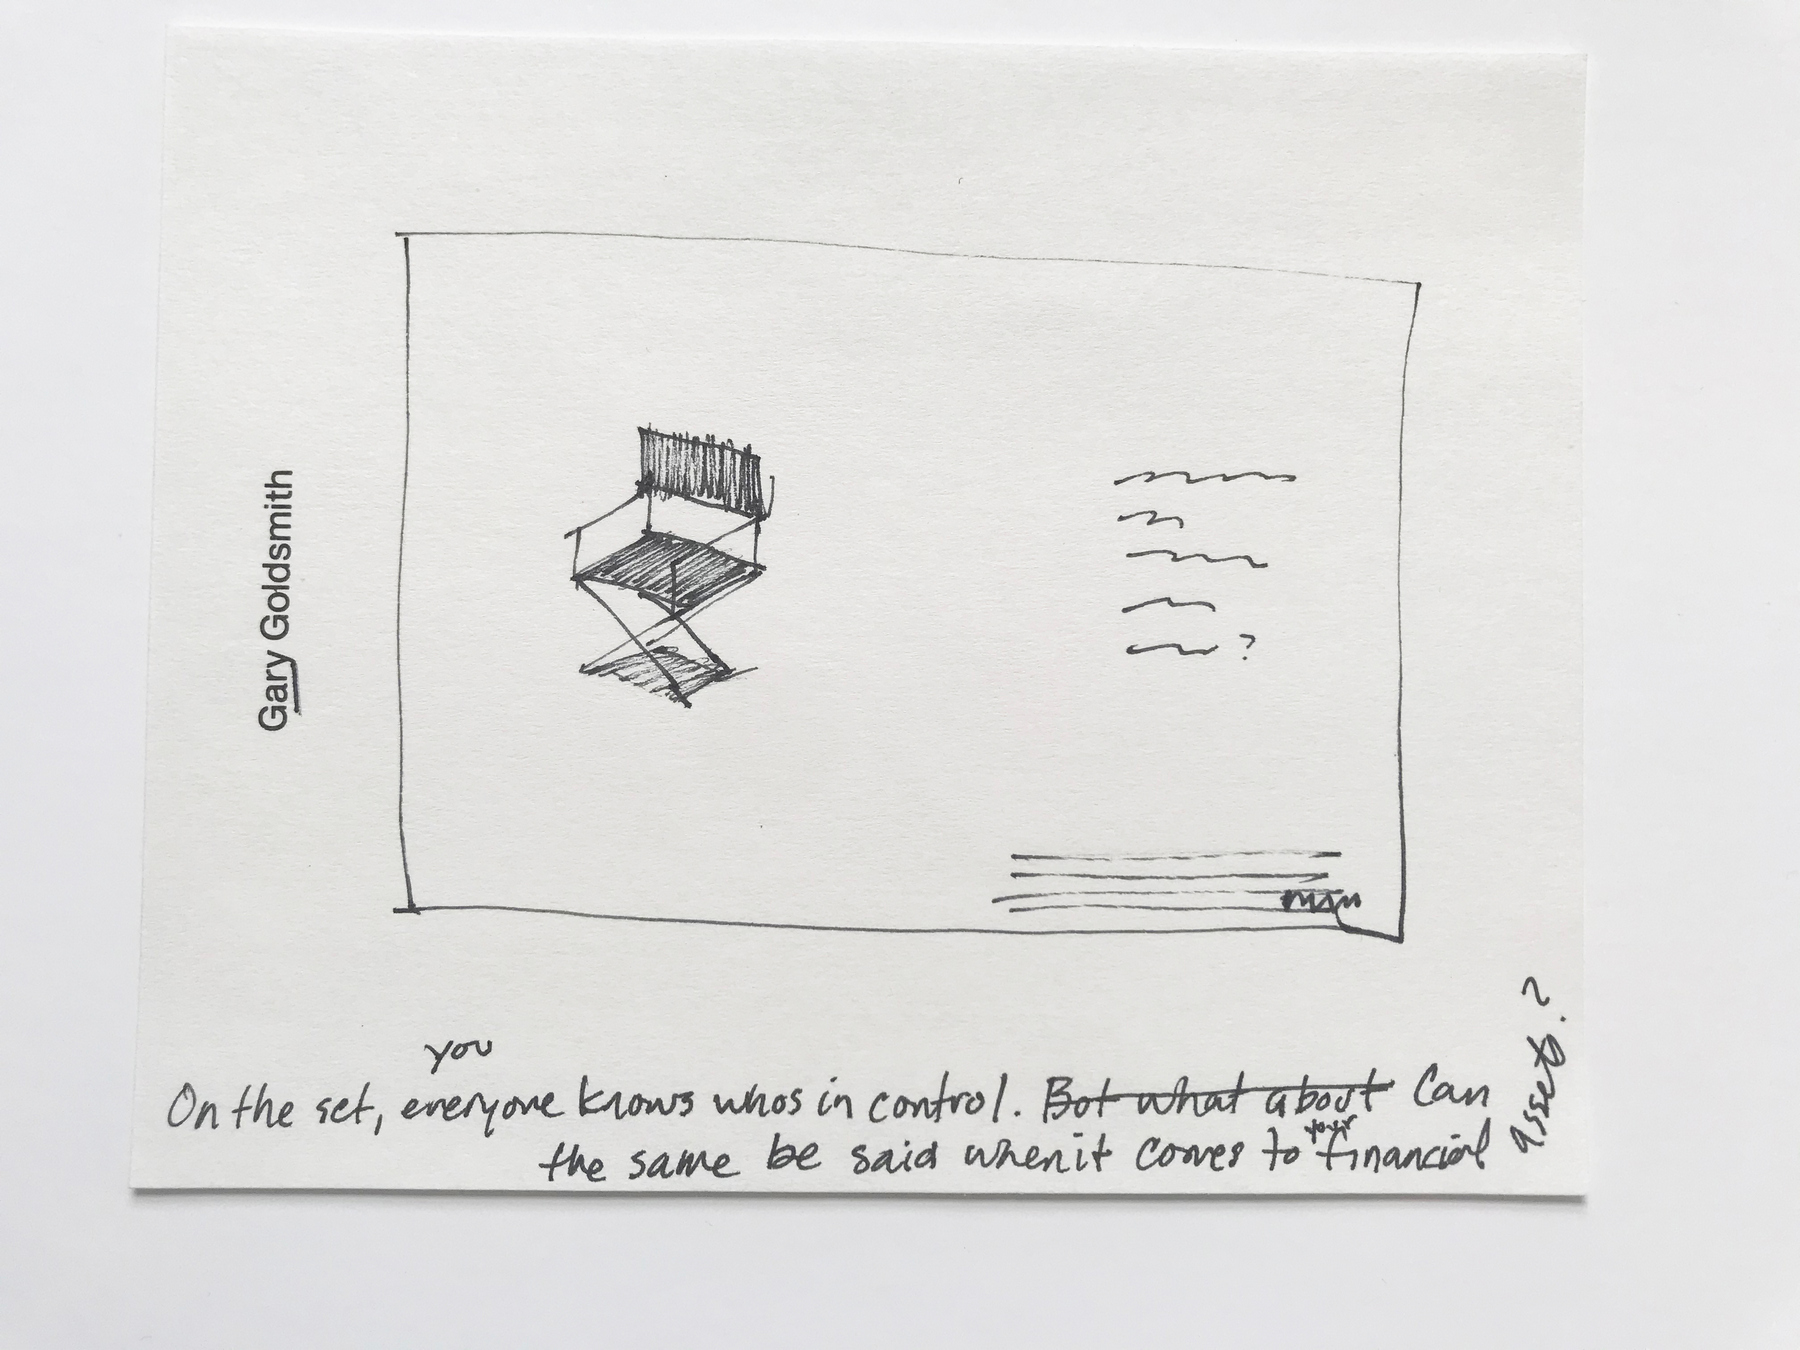 Gary Goldsmith
?
you
On the set, everyone knows whos in control. But what about Can
your
the same be said when it comes to financial
assets.?